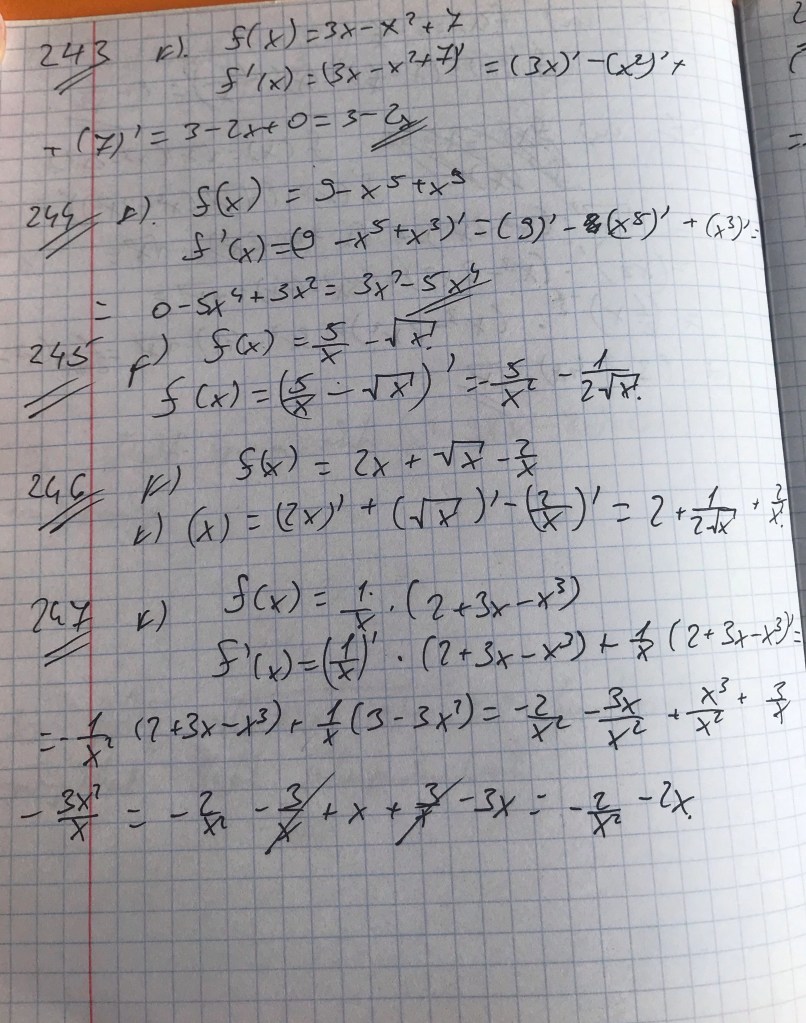 243 к). f(x) = 3x - x² + 7
f'(x) = (3x - x² + 7)' = (3x)' - (x²)' +
+ (7)' = 3 - 2x + 0 = 3 - 2x
244 к). f(x) = 9 - x⁵ + x³
f'(x) = (9 - x⁵ + x³)' = (9)' - (x⁵)' + (x³)' =
= 0 - 5x⁴ + 3x² = 3x² - 5x⁴
245 к) f(x) = 5/x - √x
f(x) = (5/x - √x)' = -5/x² - 1/2√x
246 к) f(x) = 2x + √x - 2/x
к) (x) = (2x)' + (√x)' - (2/x)' = 2 + 1/2√x + 2/x
247 к) f(x) = 1/x · (2 + 3x - x³)
f'(x) = (1/x)' · (2 + 3x - x³) + 1/x (2 + 3x - x³)' =
= -1/x² (2 + 3x - x³) + 1/x (3 - 3x²) = -2/x² - 3x/x² + x³/x² + 3/x
- 3x²/x = -2/x² - 3/x + x + 3/x - 3x = -2/x² - 2x.